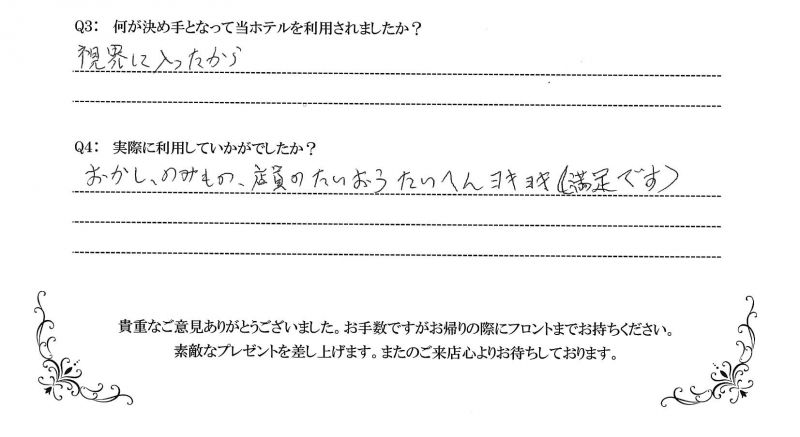 Q3： 何が決め手となって当ホテルを利用されましたか？
視界に入ったから
Q4： 実際に利用していかがでしたか？
おかし、のみもの、店員のたいおうたいへんヨキヨキ(満足です)
貴重なご意見ありがとうございました。お手数ですがお帰りの際にフロントまでお持ちください。
素敵なプレゼントを差し上げます。またのご来店心よりお待ちしております。